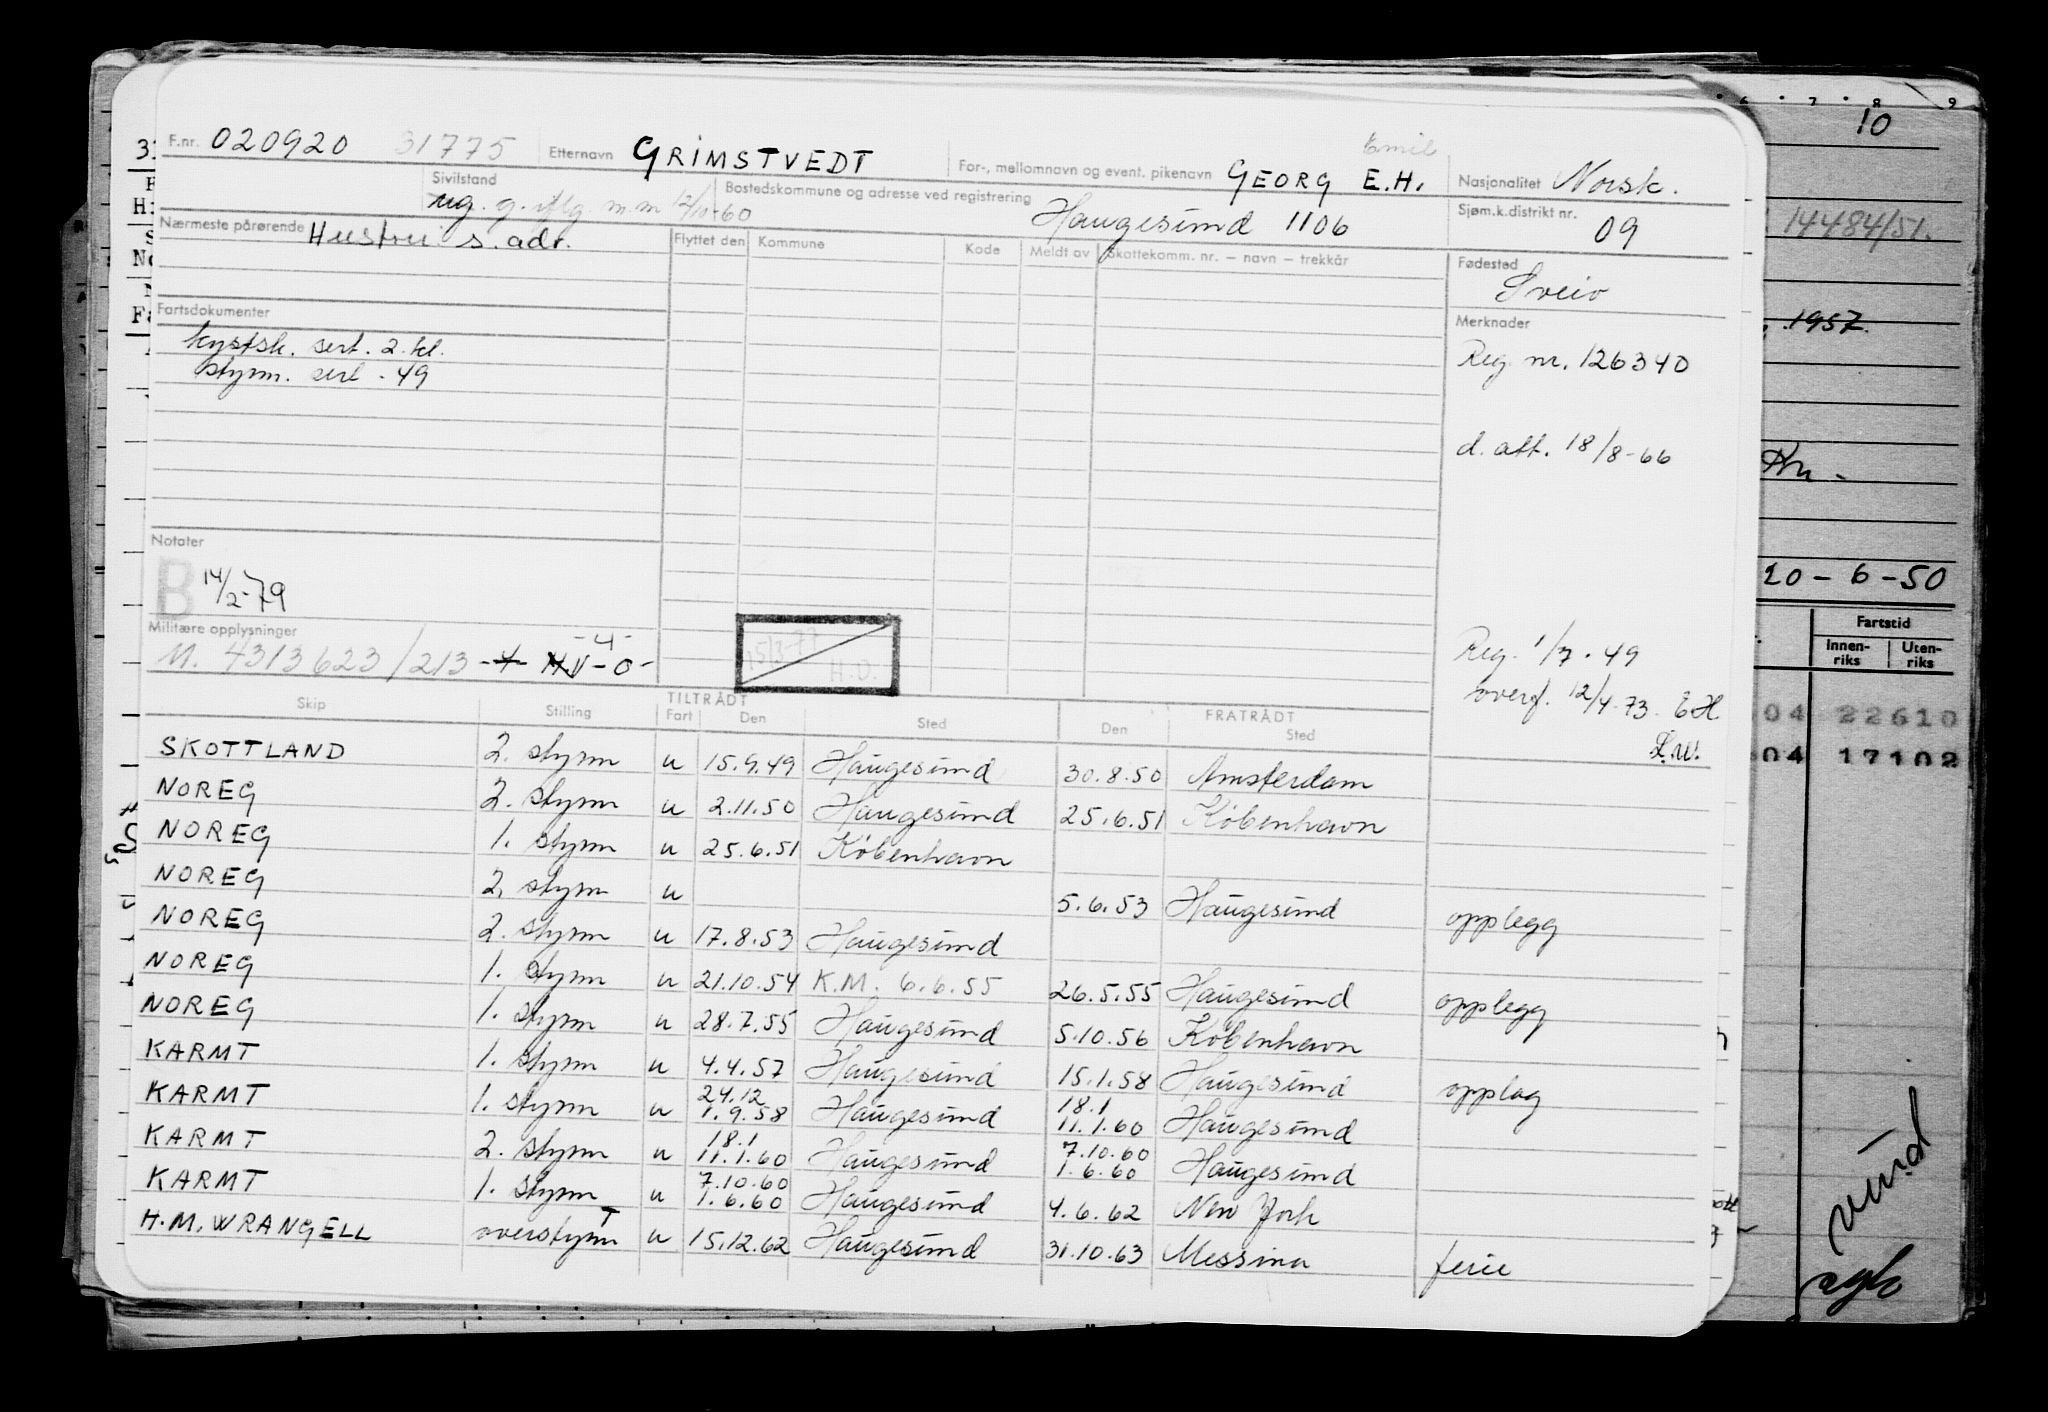 F.nr. 020920 31775 Etternavn GRIMSTVEDT For-, mellomnavn og event. pikenavn GEORG E.H. Emil Nasjonalitet Norsk.
Sivilstand ug. g. iflg. m.m 12/10-60 Bostedskommune og adresse ved registrering Haugesund 1106 Sjøm.k.distrikt nr. 09
Nærmeste pårørende Hustru s. adr. Flyttet den Kommune Kode Meldt av Skattekomm. nr. – navn – trekkår Fødested Sveio
Fartsdokumenter Merknader
kystsk. sert. 2. kl. Reg. nr. 126340
styrm. sert - 49
d. att. 18/8-66
Notater
B 14/2-79
Militære opplysninger 15/3-77 H.O.
M. 4313623/213 -4- -4- HV -0- Reg. 1/7-49
overf. 12/4-73. EH
L.w.
Skip Stilling TILTRÅDT Fart Den Sted FRATRÅDT Den Sted
SKOTTLAND 2. styrm u 15.9.49 Haugesund 30.8.50 Amsterdam
NOREG 2. styrm u 2.11.50 Haugesund 25.6.51 København
NOREG 1. styrm u 25.6.51 København
NOREG 2. styrm u 5.6.53 Haugesund opplegg
NOREG 2. styrm u 17.8.53 Haugesund
NOREG 1. styrm u 21.10.54 K.M. 6.6.55 26.5.55 Haugesund opplegg
NOREG 1. styrm u 28.7.55 Haugesund 5.10.56 København
KARMT 1. styrm u 4.4.57 Haugesund 15.1.58 Haugesund opplag
KARMT 1. styrm u 24.12 1.9.58 Haugesund 18.1 11.1.60 Haugesund
KARMT 2. styrm u 18.1 11.1.60 Haugesund 7.10.60 1.6.60 Haugesund
KARMT 1. styrm u 7.10.60 1.6.60 Haugesund 4.6.62 New York
H.M. WRANGELL overstyrm T u 15.12.62 Haugesund 31.10.63 Messina ferie
6 7 8 9
10
14484/51.
1957.
20-6-50
Fartstid
Innen-riks Uten-riks
04 22610
04 17102